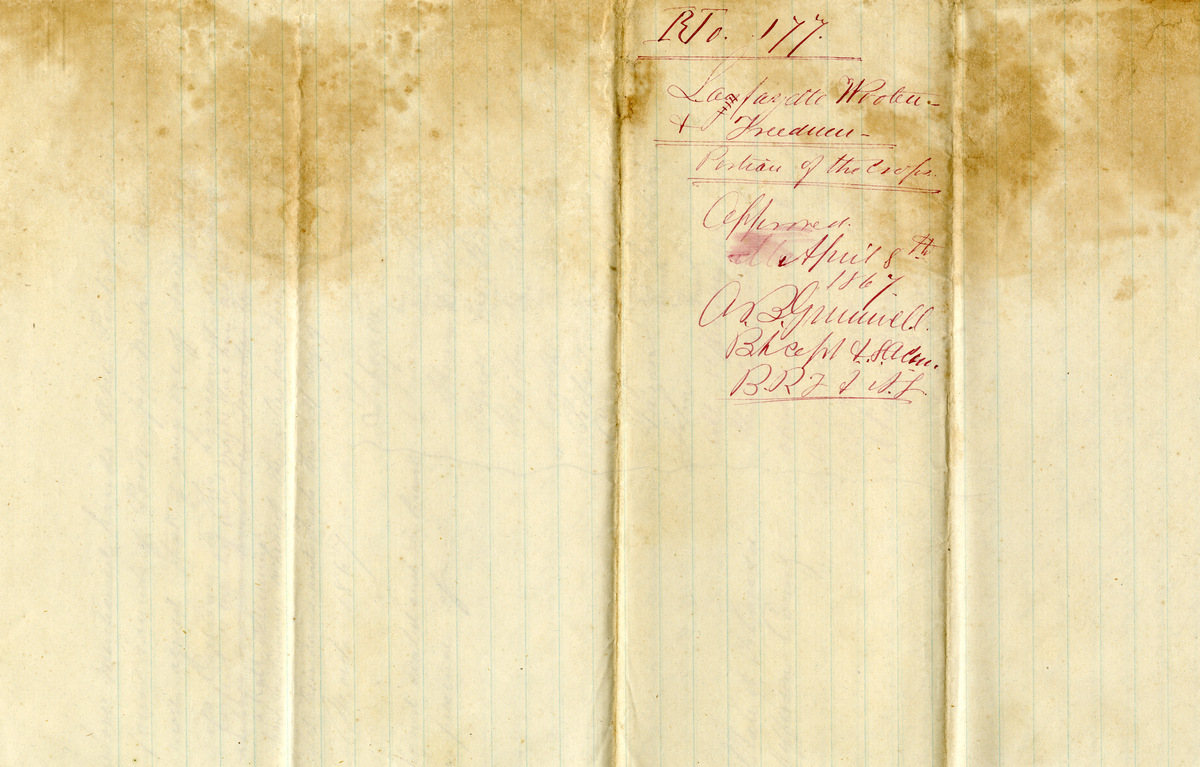 No. 177.
Lafayette Wooten -
& Freedmen -
Portion of the Crops.
Approved.
April 8th
1867
A. B. Grunwell.
Bt Capt & S.A. Com.
B. R. F. & A. L.